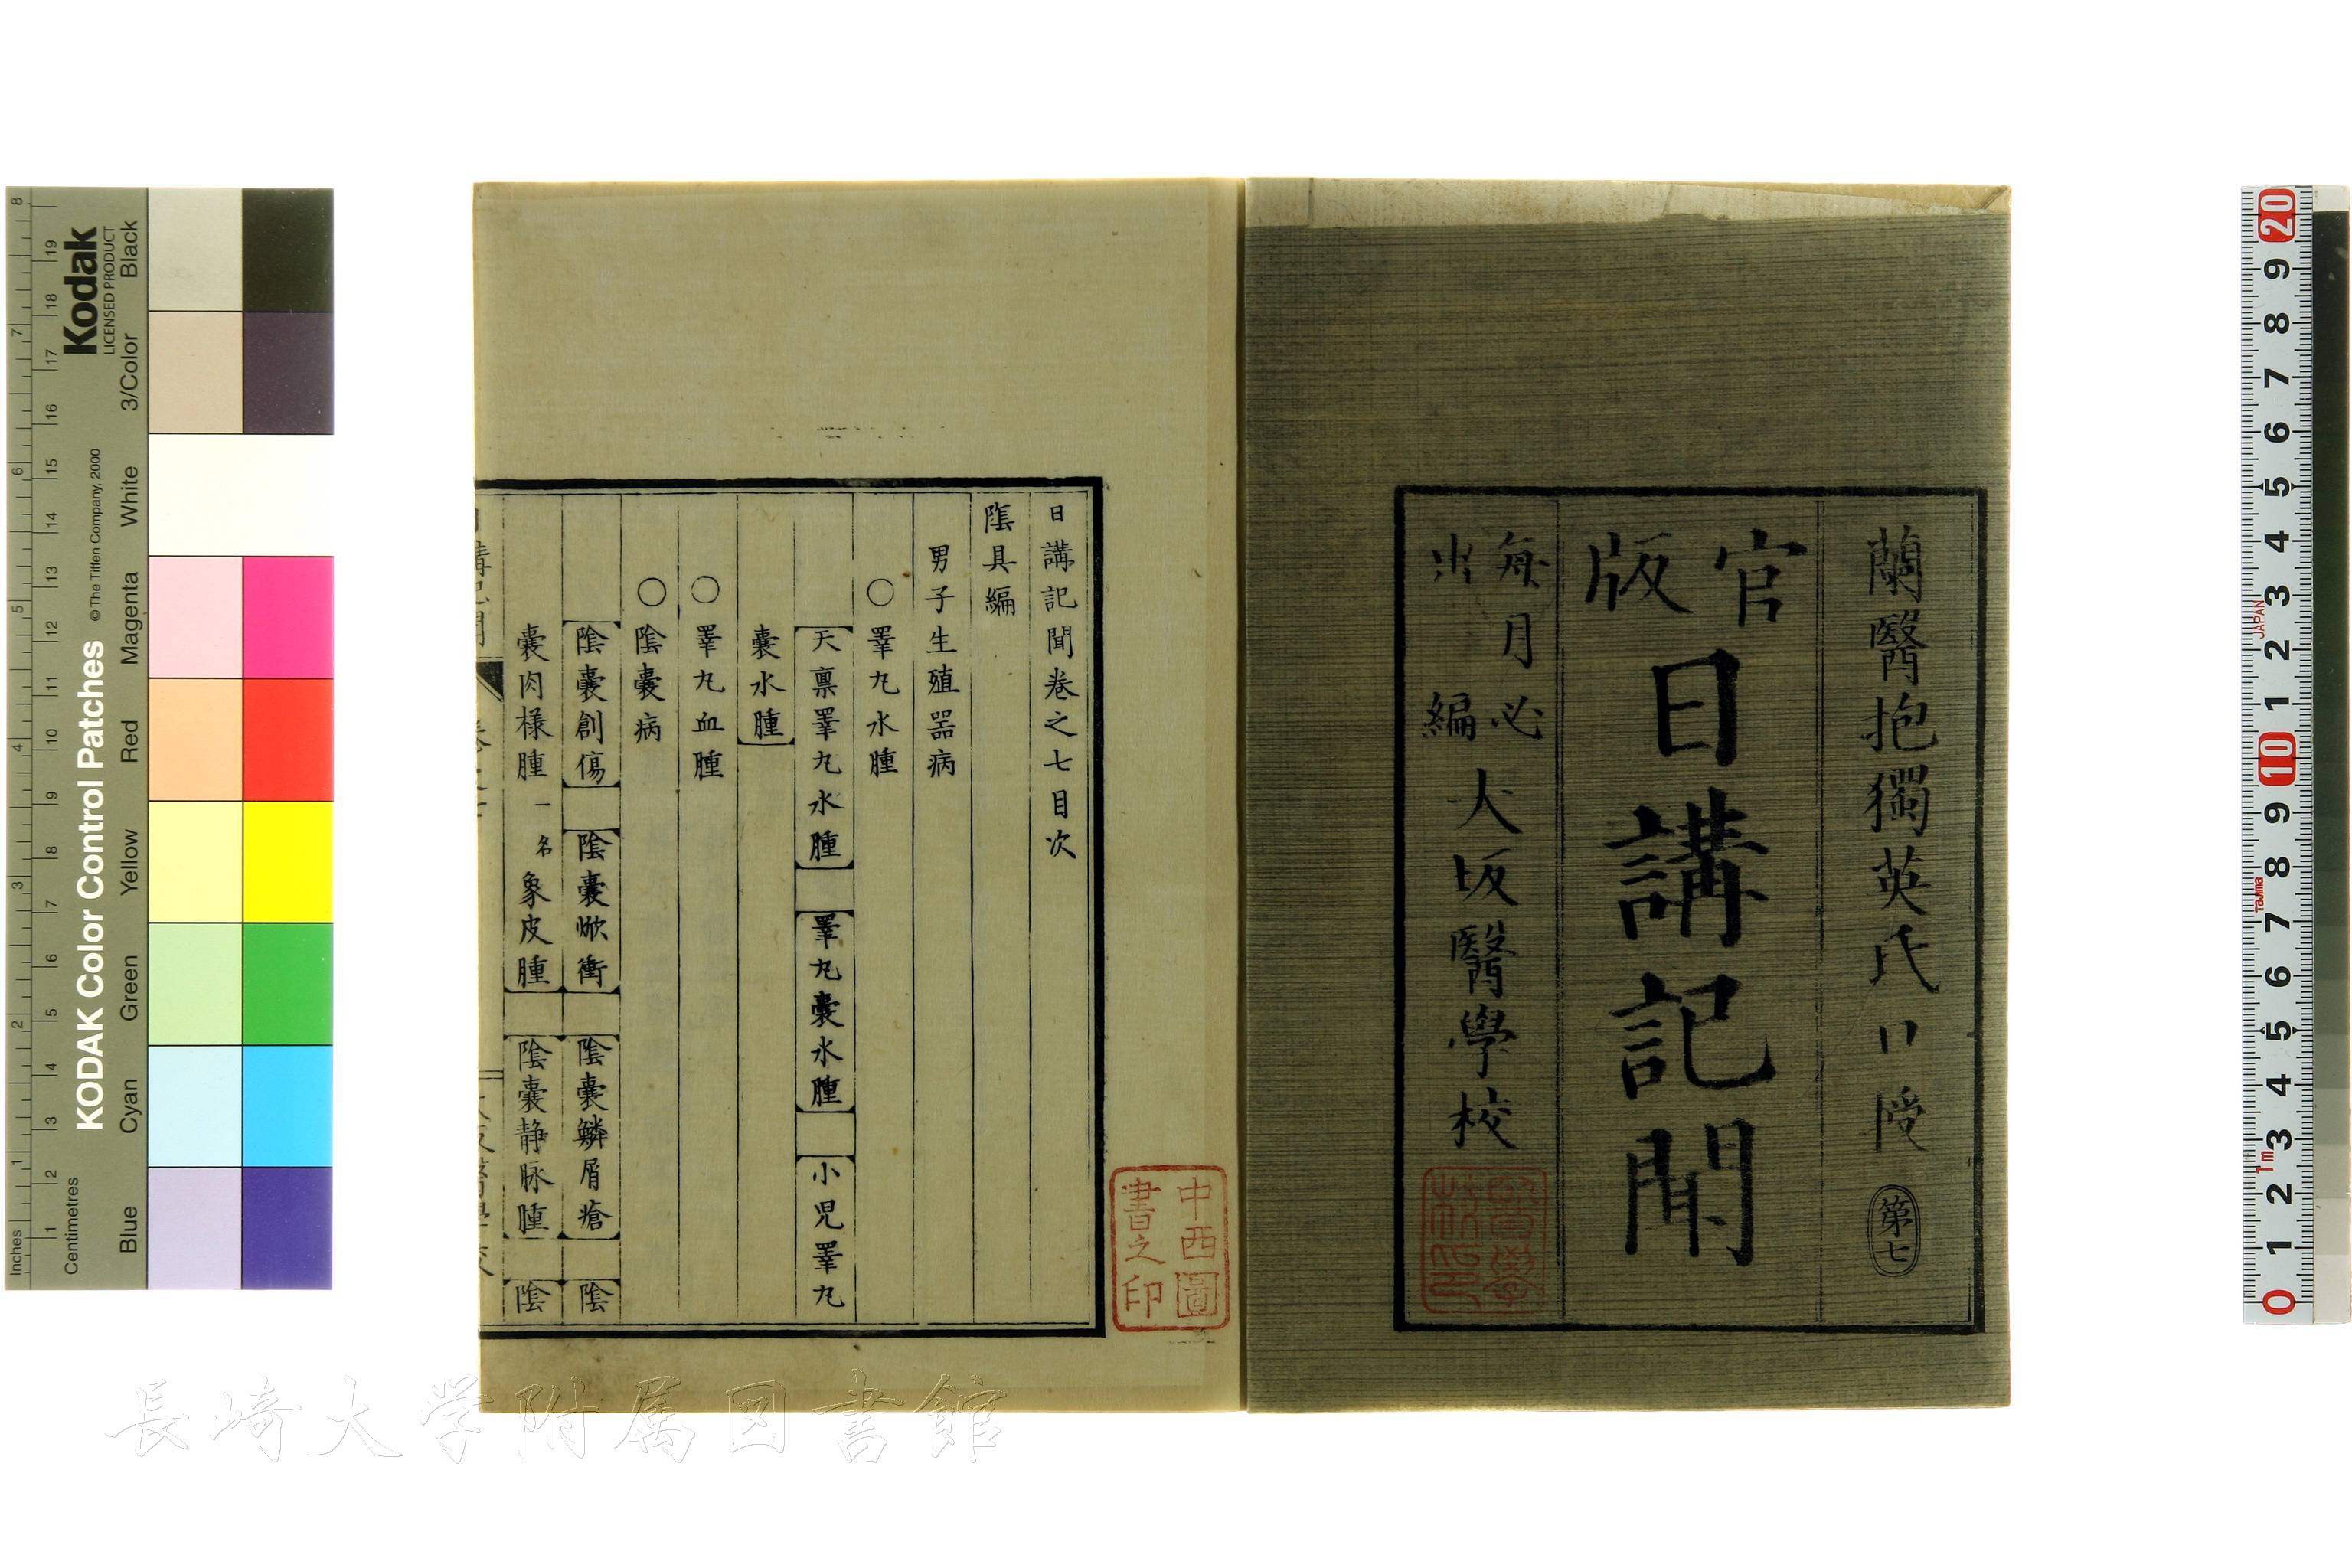 蘭醫抱獨英氏口授
第七
官版
日講記聞
毎月必出編
大坂醫學校
日講記聞卷之七目次
陰具編
男子生殖器病
○睪丸水腫
天禀睪丸水腫 睪丸囊水腫 小児睪丸
囊水腫
○睪丸血腫
○陰囊病
陰囊創傷 陰囊焮衝 陰囊鱗屑瘡 陰
囊肉様腫 一名象皮腫 陰囊静脉腫 陰
中西圖書之印
長崎大学附属図書館
Kodak
LICENSED PRODUCT
KODAK Color Control Patches
©The Tiffen Company, 2000
Inches
Centimetres
Blue
Cyan
Green
Yellow
Red
Magenta
White
3/Color
Black
8 7 6 5 4 3 2 1
19 18 17 16 15 14 13 12 11 10 9 8 7 6 5 4 3 2 1
20 9 8 7 6 5 4 3 2 1 10 9 8 7 6 5 4 3 2 1 0
JAPAN
Tajima
1m